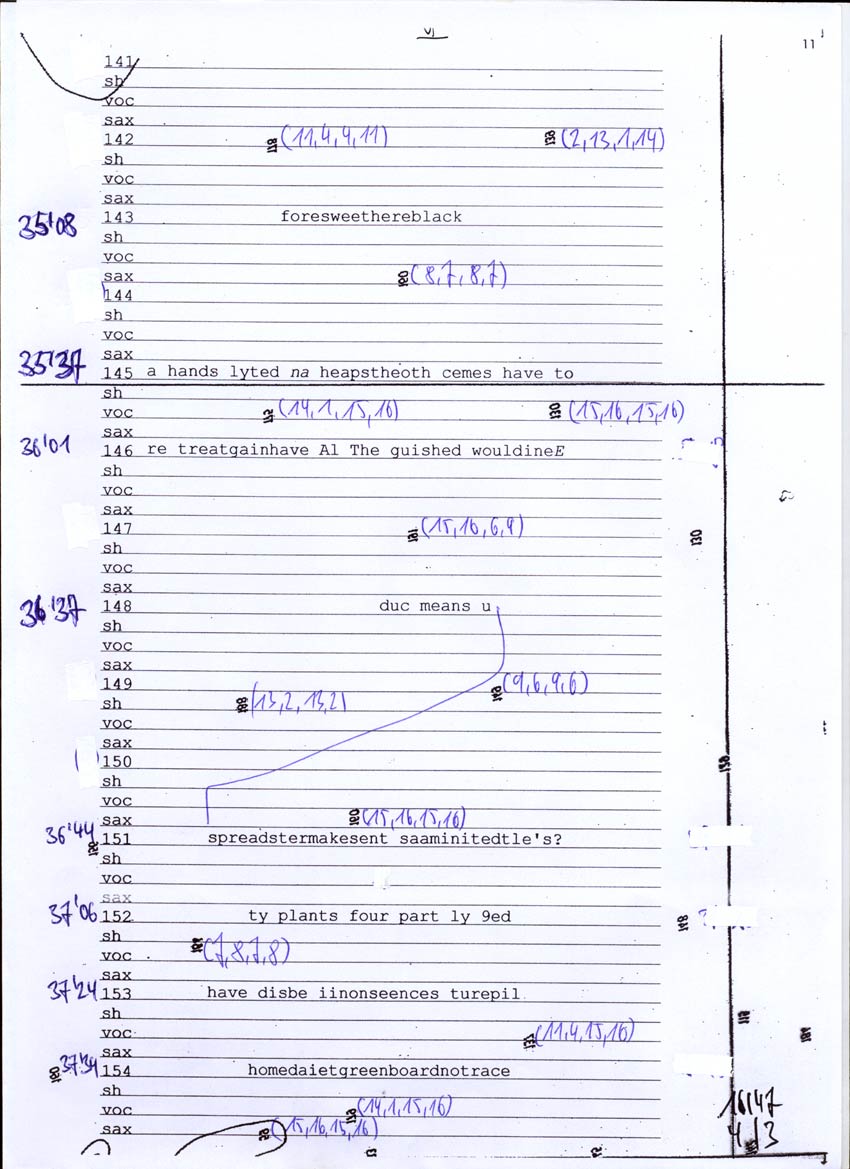 VI
11
141
sh
voc
sax
142 (11,4,4,11) (2,13,1,14)
sh
voc
sax
35'08 143 foresweethereblack
sh
voc
sax (8,7,8,7)
144
sh
voc
sax
35'37 145 a hands lyted na heapstheoth cemes have to
sh
voc (14,1,15,16) 130 (15,16,15,16)
sax
36'01 146 re treatgainhave Al The guished wouldineE
sh
voc
sax
147 (15,16,6,9)
sh 130
voc
sax
36'37 148 duc means u
sh
voc
sax
149 (9,6,9,6)
sh (13,2,13,2)
voc
sax
150
sh
voc
sax (15,16,15,16)
36'44 151 spreadstermakesent saaminitedtle's?
sh
voc
sax
37'06 152 ty plants four part ly 9ed
sh
voc (7,8,7,8)
sax
37'24 153 have disbe iinonseences turepil
sh
voc (11,4,15,16)
sax
37'34 154 homedaietgreenboardnotrace
sh
voc (14,1,15,16)
sax (15,16,15,16)
16'47